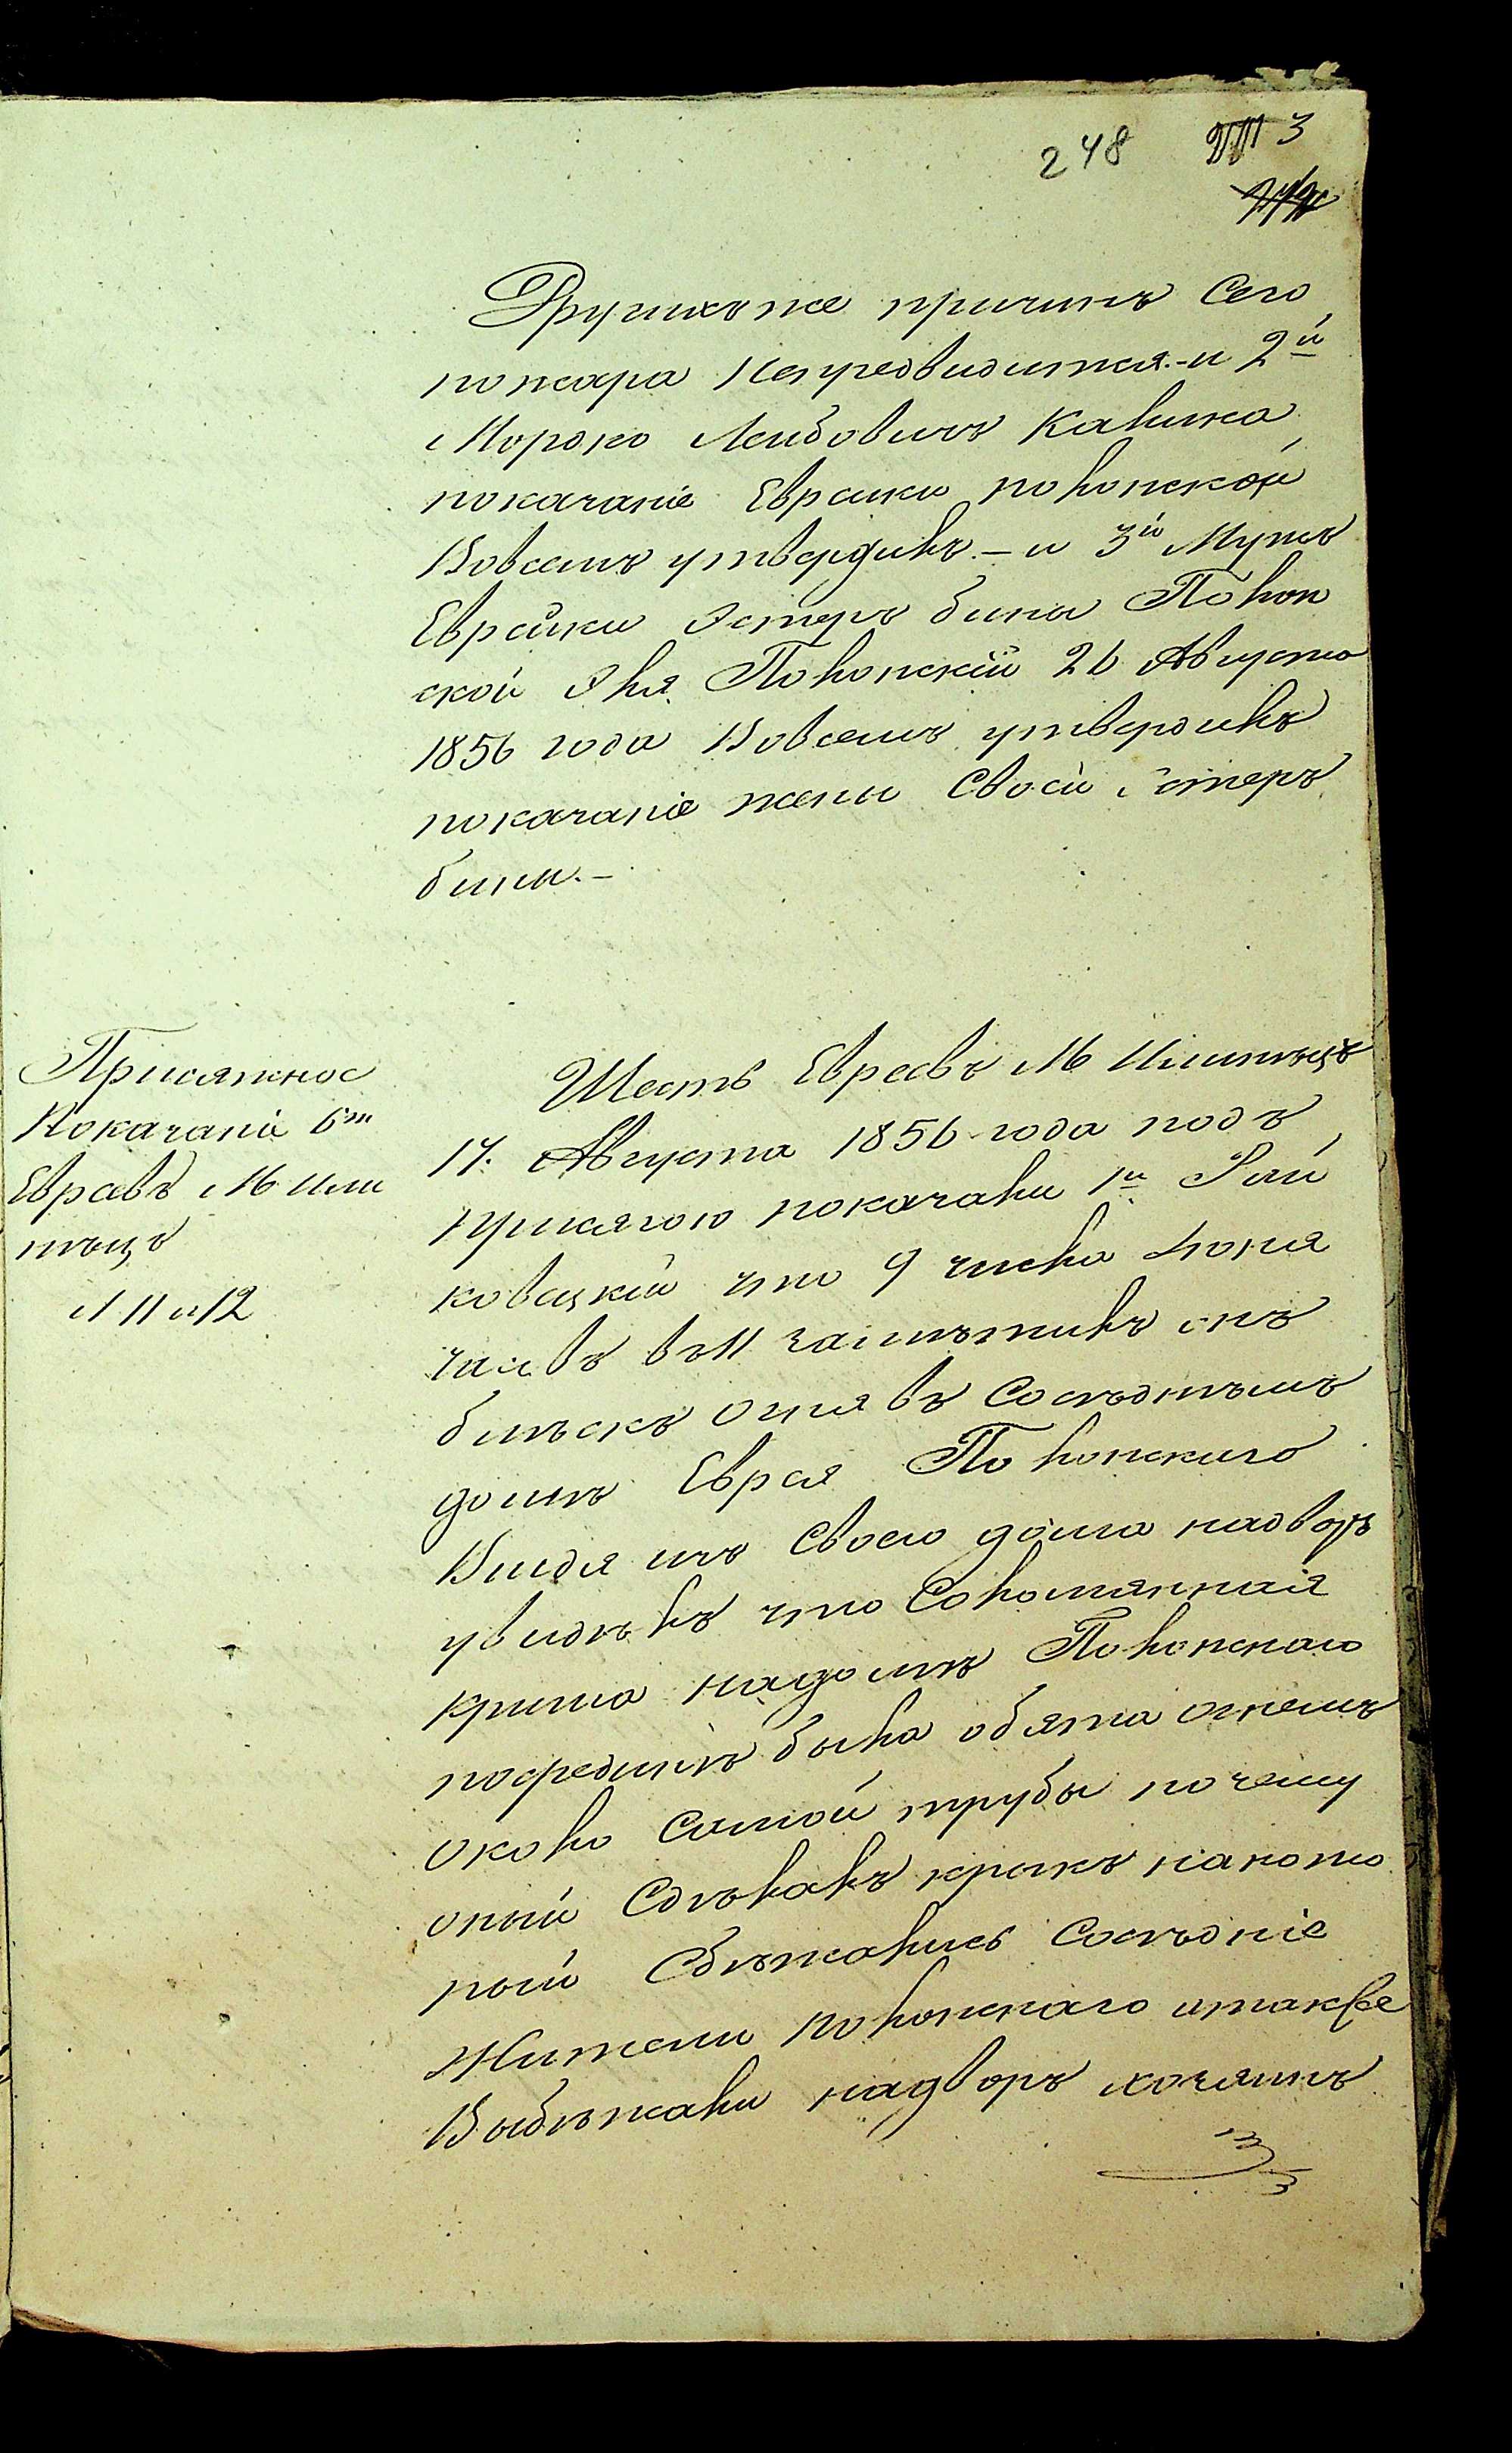 248 3
Другихъ же причинъ сего
пожара непредвидится.- и 2й
Мордко Лейбовичъ Калика
показаніе Еврейки полонской
вовсемъ утвердилъ.- и 3й Мужъ
Еврейки Эстеръ бины Полон
ской Эля Полонскій 26 Августа
1856 года вовсемъ утвердилъ
показаніе жены своей Эстеръ
бины.-
Присяжное
Показаніе 6ти
Евреевъ М Или
нъцъ
л 11 и 12
Шесть Евреевъ М Илинъцъ
17. Августа 1856 года подъ
присягою показали 1й
ковецкій что 9 числа Іюня
часовъ въ 11 замѣтилъ онъ
блѣскъ огня въ сосѣднемъ
домѣ Еврея Полонскаго
Выйдя изъ своего дома надворъ
увидѣлъ что соломянная
крыша надомѣ Полонскаго
посрединѣ была обята огнемъ
около самой трубы почему
оный сдѣлалъ крикъ накото
рый сбѣжались сосѣдніе
Жители полонскаго итакже
Выбѣжали надворъ хозяинъ